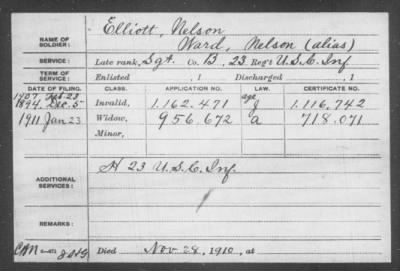 NAME OF SOLDIER: Elliott, Nelson
Ward, Nelson (alias)
SERVICE: Late rank, Sgt. Co. B, 23 Reg't U.S.C. Inf
TERM OF SERVICE: Enlisted , 1 Discharged , 1
DATE OF FILING. CLASS. APPLICATION NO. LAW. CERTIFICATE NO.
1907 Feb 23 age
1894, Dec. 5 Invalid, 1.162.471 J 1.116.742
1911 Jan 23 Widow, 956.672 a 718.071
Minor,
ADDITIONAL SERVICES: H 23 U.S.C. Inf.
REMARKS:
Died Nov. 28, 1910, at